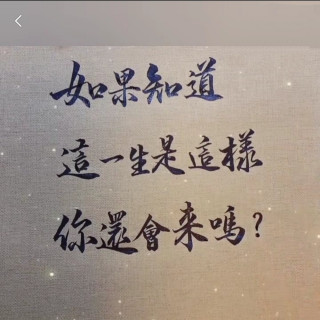 如果知道
這一生是這樣
你還會來嗎？